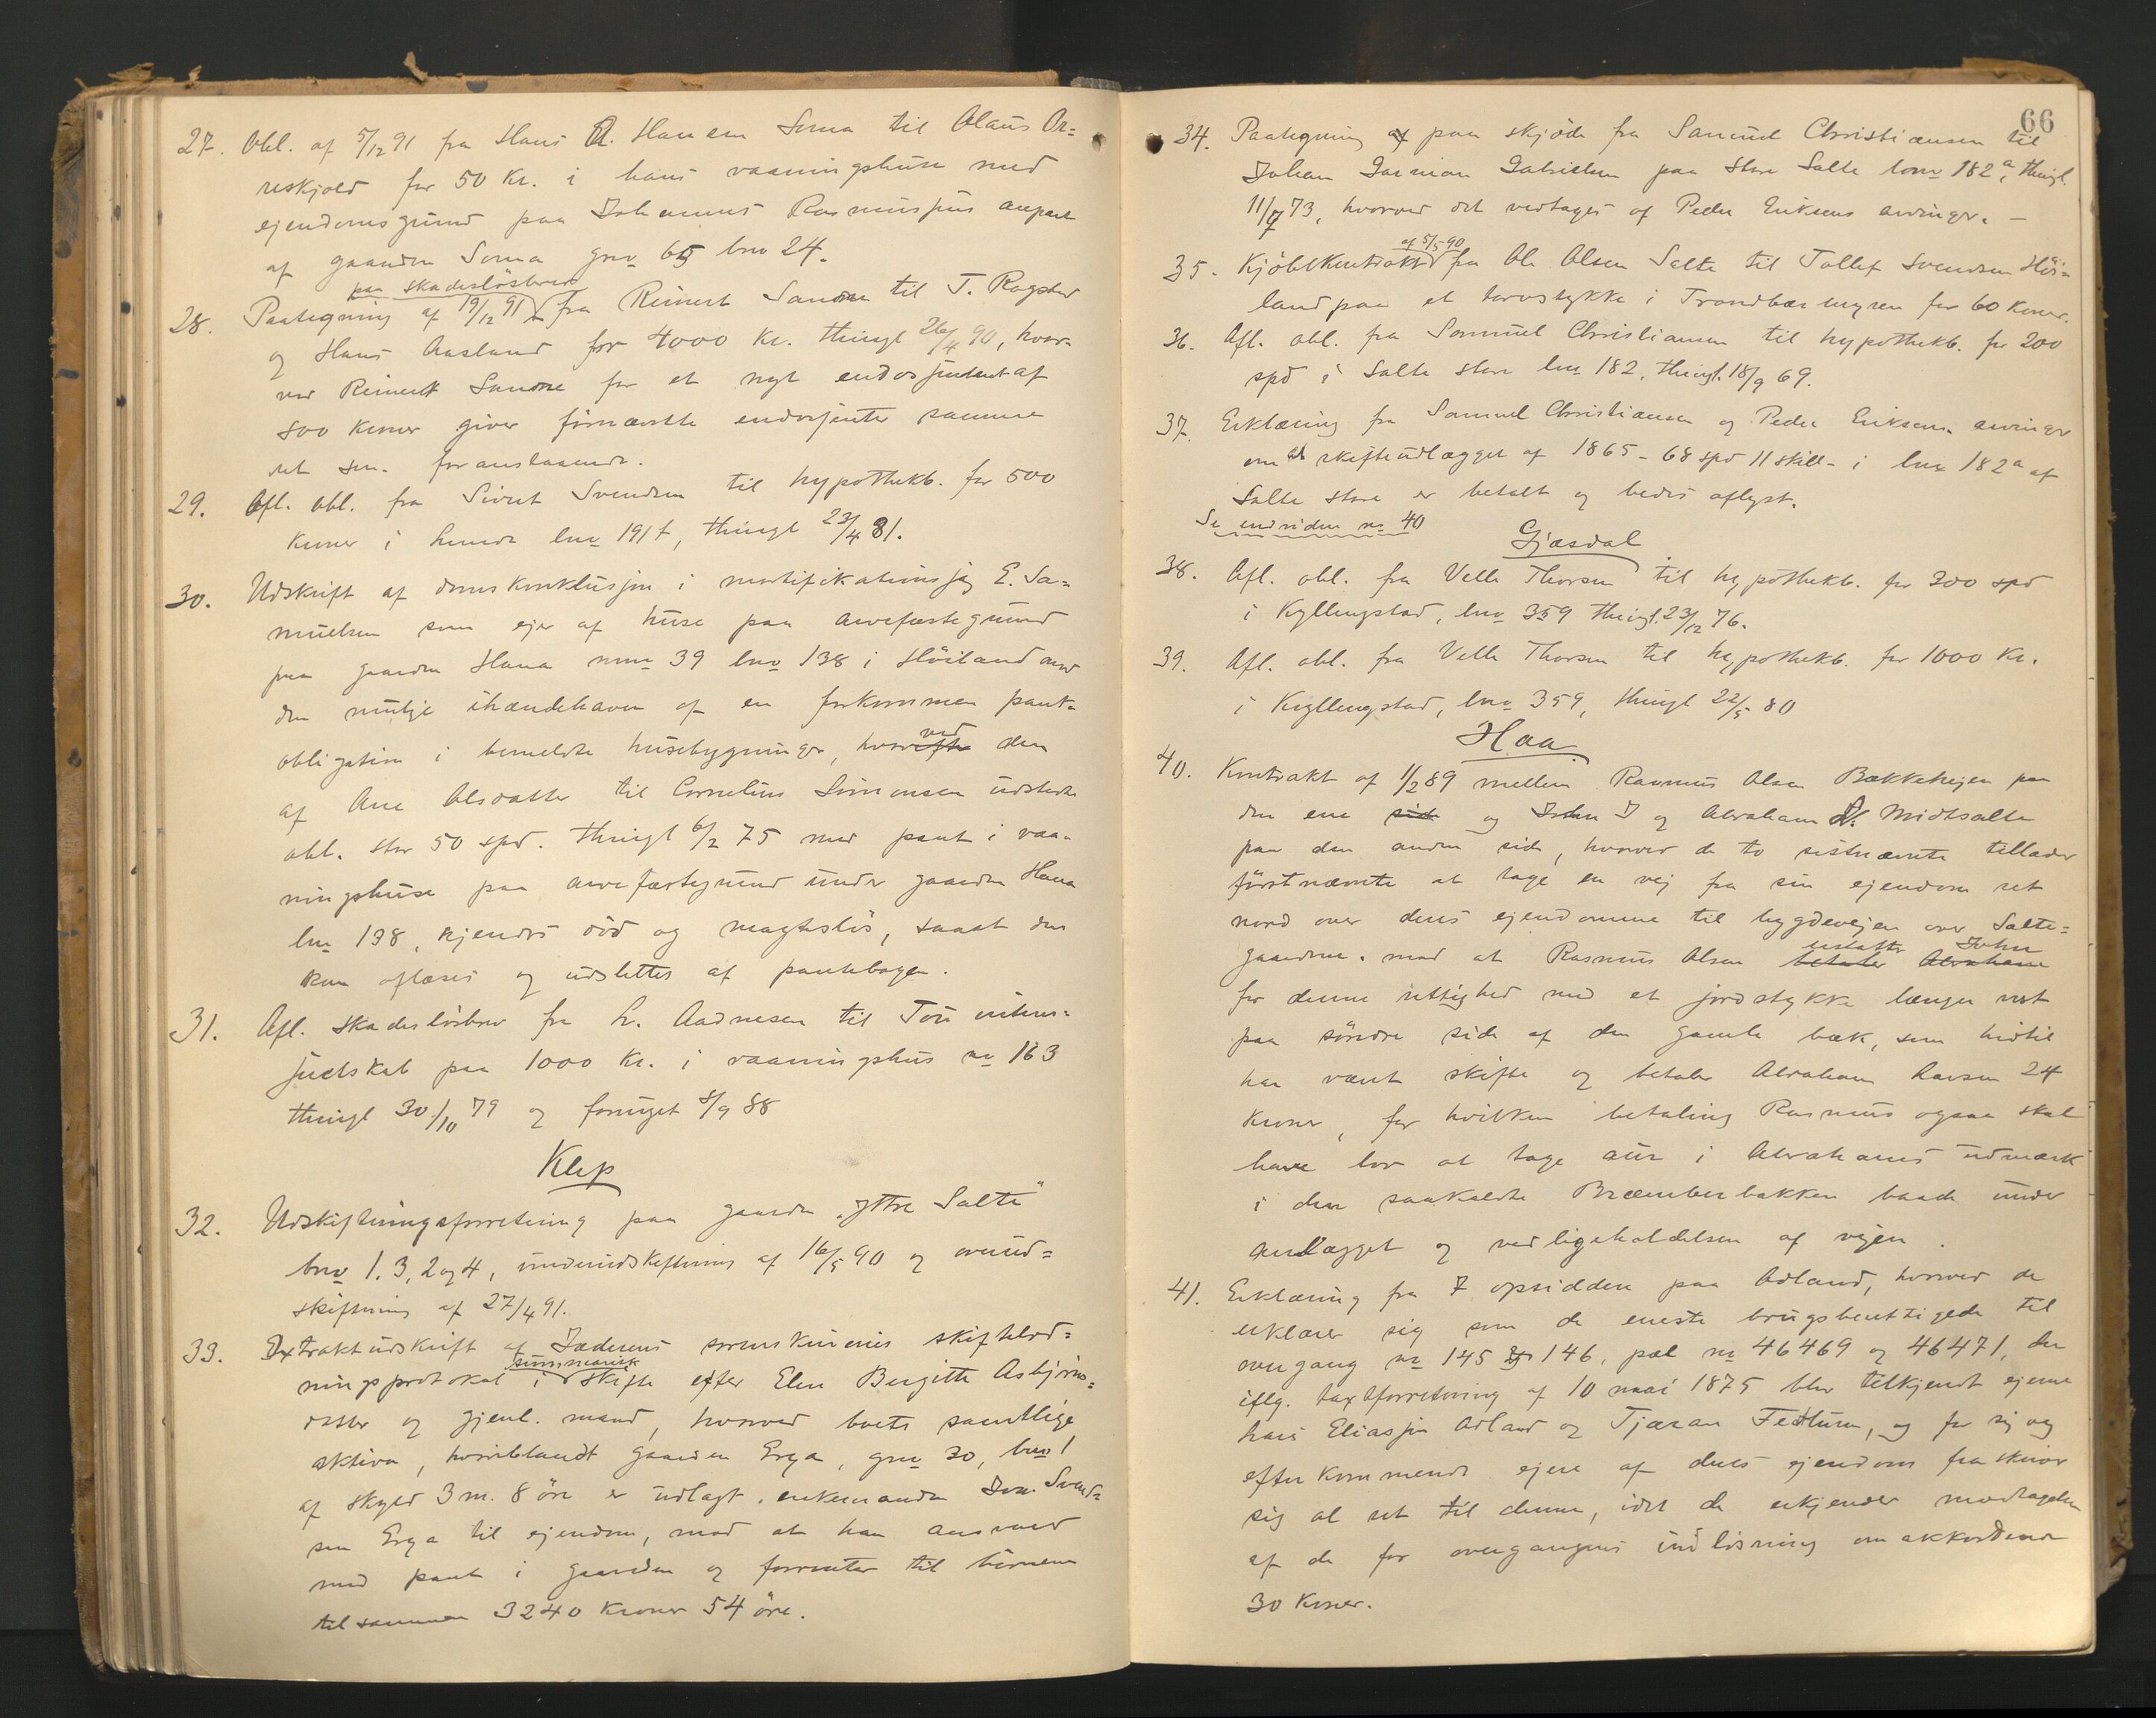 27. Obl. af 5/12 91 fra Hans A. Hansen Soma til Olaus Or=
reskjold for 50 Kr. i hans vaaningshuse med
ejendomsgrund paa Johannes Rasmusjøns anpart
af gaarden Soma gno 65 bno 24.
paa skadesløsbrev
28. Paategning af 19/12 91 fra Reinert Sandve til T. Rogstad
og Hans Aasland for 4000 Kr. thingl 26/4 90, hvor=
ved Reinert Sandve for et nyt endossement af
800 kroner giver fornævnte endossenter samme
ret som foranstaaende.
29. Afl. obl. fra Sivert Svendsen til hypothekb. for 500
kroner i Lunde lno 191 f, thingl 23/4 81.
30. Udskrift af domskonklusjon i mortifikationssag E. Sa=
muelsen som ejer af huse paa arvefæstegrund
paa gaarden Hana mno 39 lno 138 i Høiland mod
den mulige ihændehaver af en forkommen pant=
obligation i bemeldte husebygninger, hvorefter ved den
af Ane Olsdatter til Cornelius Simonsen udstedte
obl. stor 50 spd. thingl 6/2 75 med pant i vaa=
ningshuse paa arvefæstegrund under gaarden Hana
lno 138, kjendes død og magtesløs, saaat den
kan aflæses og udslettes af pantebogen.
31. Afl. skadesløsbrev fra L. Aadnesen til Tou interes=
sentskab paa 1000 Kr. i vaaningshus no 163
thingl 30/10 79 og fornyet 8/9 88
Klep
32. Udskiftningsforretning paa gaarden "Yttre Salte"
bno 1. 3, 2 og 4, underudskiftning af 16/5 90 og overud=
skiftning af 27/4 91.
33. Extraktudskrift af Jæderens sorenskriveris skiftelod=
summarisk
ningsprotokol i skifte efter Elen Bergitte Asbjørns=
datter og gjenl. mand, hvorved boets samtlige
aktiva, hvoriblandt gaarden Erga, gno 30, bno 1
af skyld 3 m. 8 øre er udlagt enkemanden Ivar Svend=
sen Erga til ejendom, mod at han ansvarer
med pant i gaarden og forrenter til børnene
tilsammen 3240 kroner 54 øre.
66
34. Paategning af paa skjøde fra Samuel Christiansen til
Johan Gabrielsen paa Store Salte lno 182 a, thingl.
11/7 73, hvorved det vedtages af Peder Eriksens arvinger. -
af 5/5 90
35. Kjøbekontrakt fra Ole Olsen Salte til Tollef Svendsen Høi=
land paa et torvstykke i Trondbærmyren for 60 kroner.
36. Afl. obl. fra Samuel Christiansen til hypothekb. for 200
spd i Salte store lno 182, thingl. 18/9 69.
37. Erklæring fra Samuel Christiansen og Peder Eriksens arvinger
om at skifteudlægget af 1865 - 68 spd 11 skill - i lno 182 a af
Salte store er betalt og bedes aflyst.
Se endvidere no 40
Gjæsdal
38. Afl. obl. fra Velle Thorsen til hypothekb. for 300 spd
i Kyllingstad, lno 359 thingl. 23/12 76.
39. Afl. obl. fra Velle Thorsen til hypothekb. for 1000 Kr.
i Kyllingstad, lno 359, thingl 22/5 80
Haa
40. Kontrakt af 1/2 89 mellem Rasmus Olsen Bækkehejen paa
den ene side og John I og Abraham L. Midtsalte
paa den anden side, hvorved de to sistnævnte tillader
førstnævnte at tage en vej fra sin ejendom ret
nord over deres ejendomme til bygdevejen over Salte=
erstatter John
gaardene. mod at Rasmus Olsen betaler Abraham
for denne rettighed med et jordstykke længer vest
paa søndre side af den gamle bæk, som hidtil
har været skifte og betaler Abraham Larsen 24
kroner, for hvilken betaling Rasmus ogsaa skal
have lov at tage aur i Abrahams udmark
i den saakaldte Bræmberbakken baade under
anlægget og vedligeholdelsen af vejen.
41. Erklæring fra 7 opsiddere paa Adland, hvorved de
erklærer sig som de eneste brugsberettigede til
overgang no 145 og 146, pæl no 46469 og 46471, der
iflg. taxtforretning af 10 mai 1875 blev tilkjendt ejerne
Lars Eliasjøn Adland og Tjæran Fedturn, og for sig og
efterkommende ejere af deres ejendom fraskriver
sig al ret til denne, idet de erkjender modtagelsen
af de for overgangens indløsning om akkorderede
30 kroner.